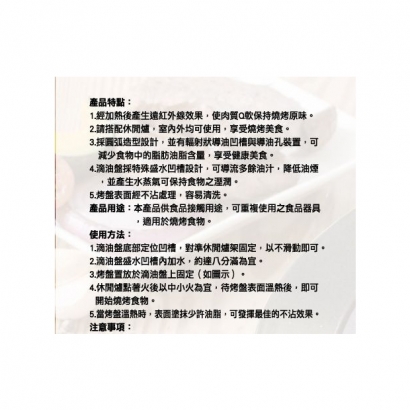 產品特點：
1.經加熱後產生遠紅外線效果，使肉質Q軟保持燒烤原味。
2.請搭配休閒爐，室內外均可使用，享受燒烤美食。
3.採圓弧造型設計，並有輻射狀導油凹槽與導油孔裝置，可
減少食物中的脂肪油脂含量，享受健康美食。
4.滴油盤採特殊盛水凹槽設計，可導流多餘油汁，降低油煙
，並產生水蒸氣可保持食物之溼潤。
5.烤盤表面經不沾處理，容易清洗。
產品用途：本產品供食品接觸用途，可重複使用之食品器具
，適用於燒烤食物。
使用方法：
1.滴油盤底部定位凹槽，對準休閒爐架固定，以不滑動即可。
2.滴油盤盛水凹槽內加水，約達八分滿為宜。
3.烤盤置放於滴油盤上固定（如圖示）。
4.休閒爐點著火後以中小火為宜，待烤盤表面溫熱後，即可
開始燒烤食物。
5.當烤盤溫熱時，表面塗抹少許油脂，可發揮最佳的不沾效果。
注意事項：